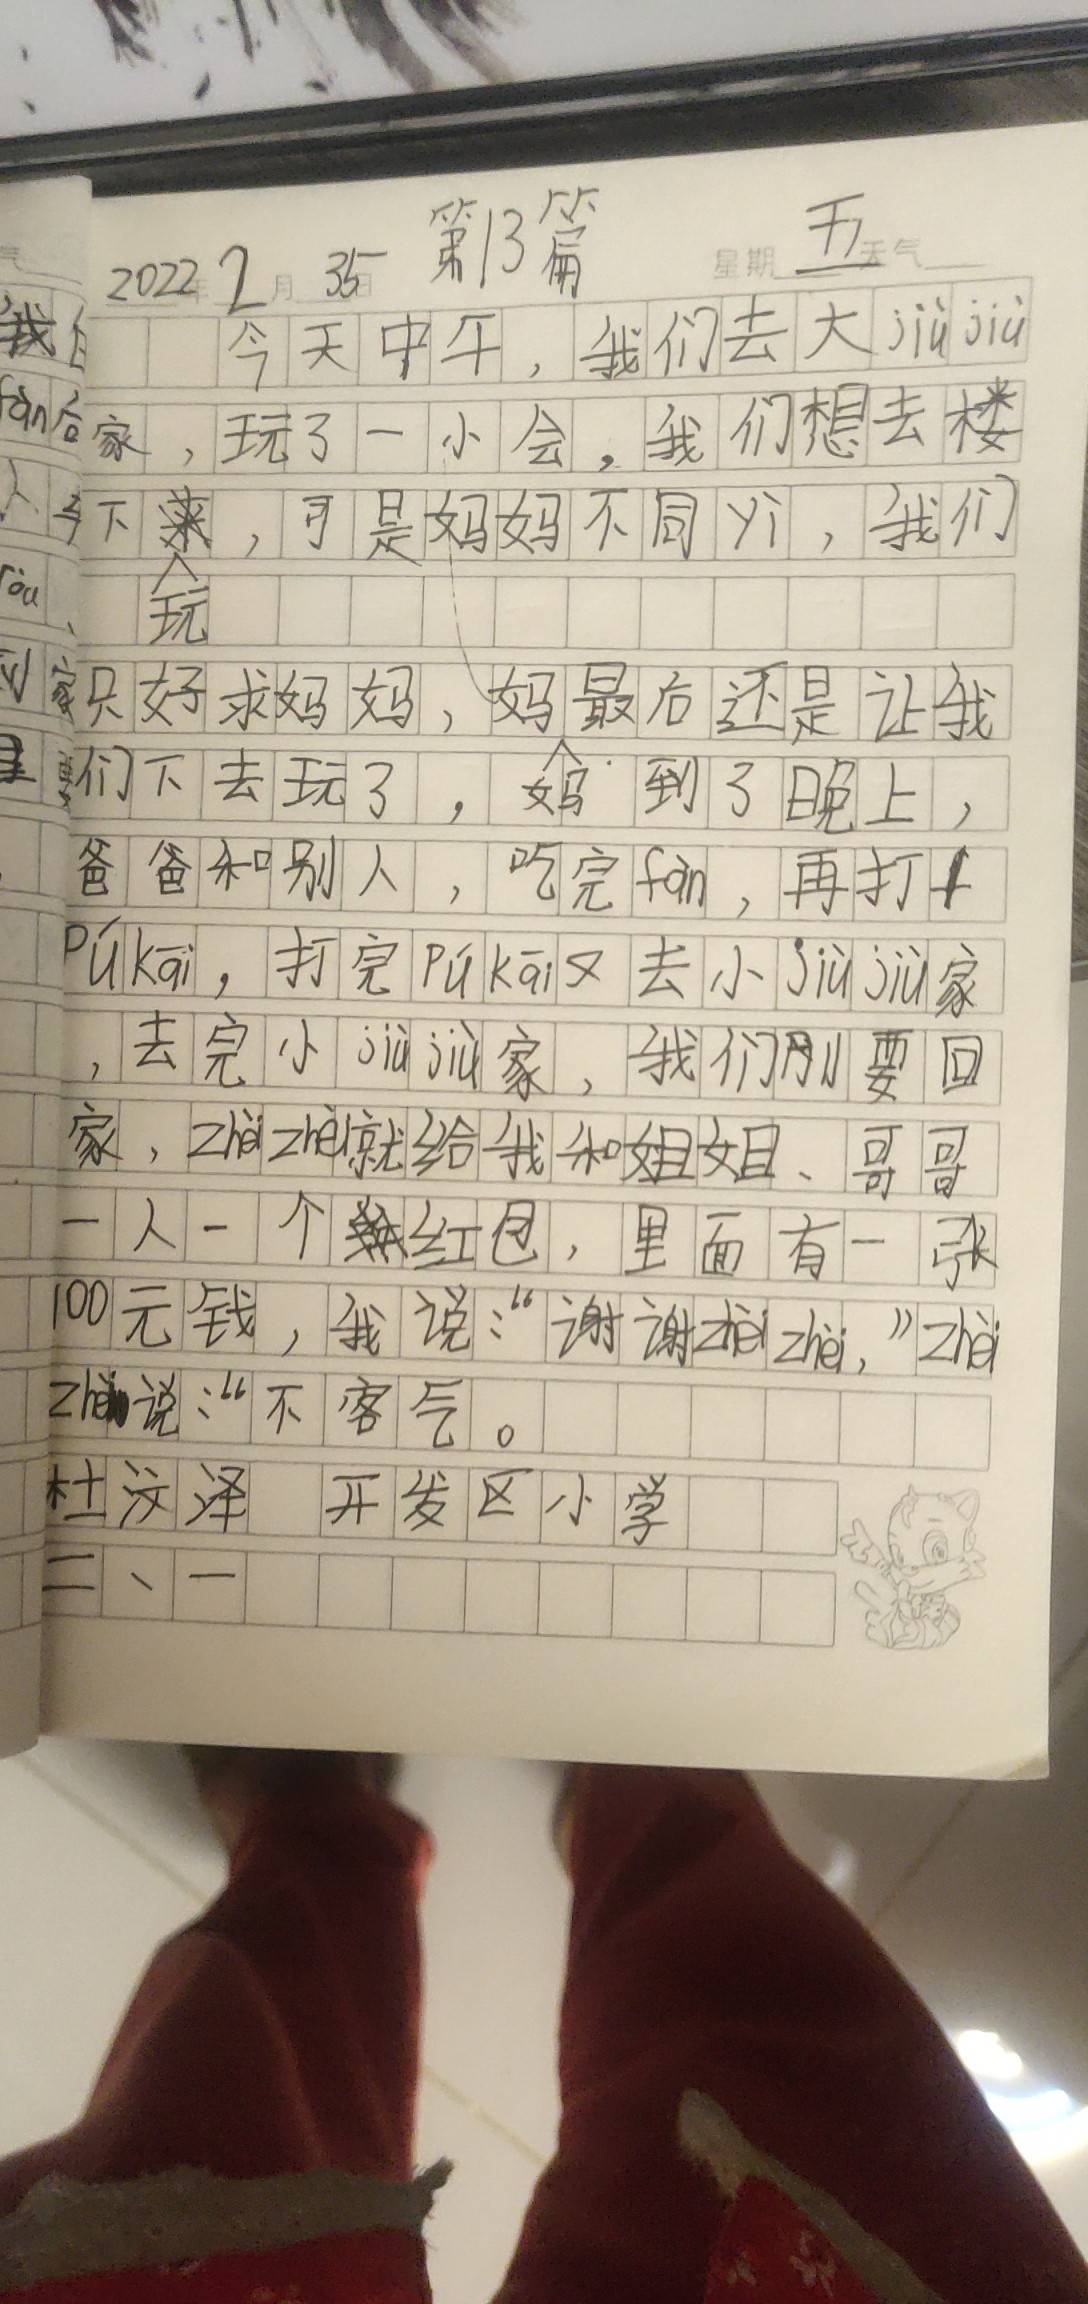 第13篇
2022年2月35日 星期五 天气
今天中午，我们去大jiùjiù
家，玩了一小会，我们想去楼
下，可是妈妈不同yì，我们
玩
只好求妈妈，妈最后还是让我
妈
们下去玩了，到了晚上，
爸爸和别人，吃完fàn，再打
Púkāi，打完Púkāi又去小jiùjiù家
，去完小jiùjiù家，我们刚要回
家，zhèizhèi就给我和姐姐、哥哥
一人一个红包，里面有一张
100元钱，我说：“谢谢zhèizhèi，”zhèi
zhèi说：“不客气。
杜汶泽 开发区小学
二、一